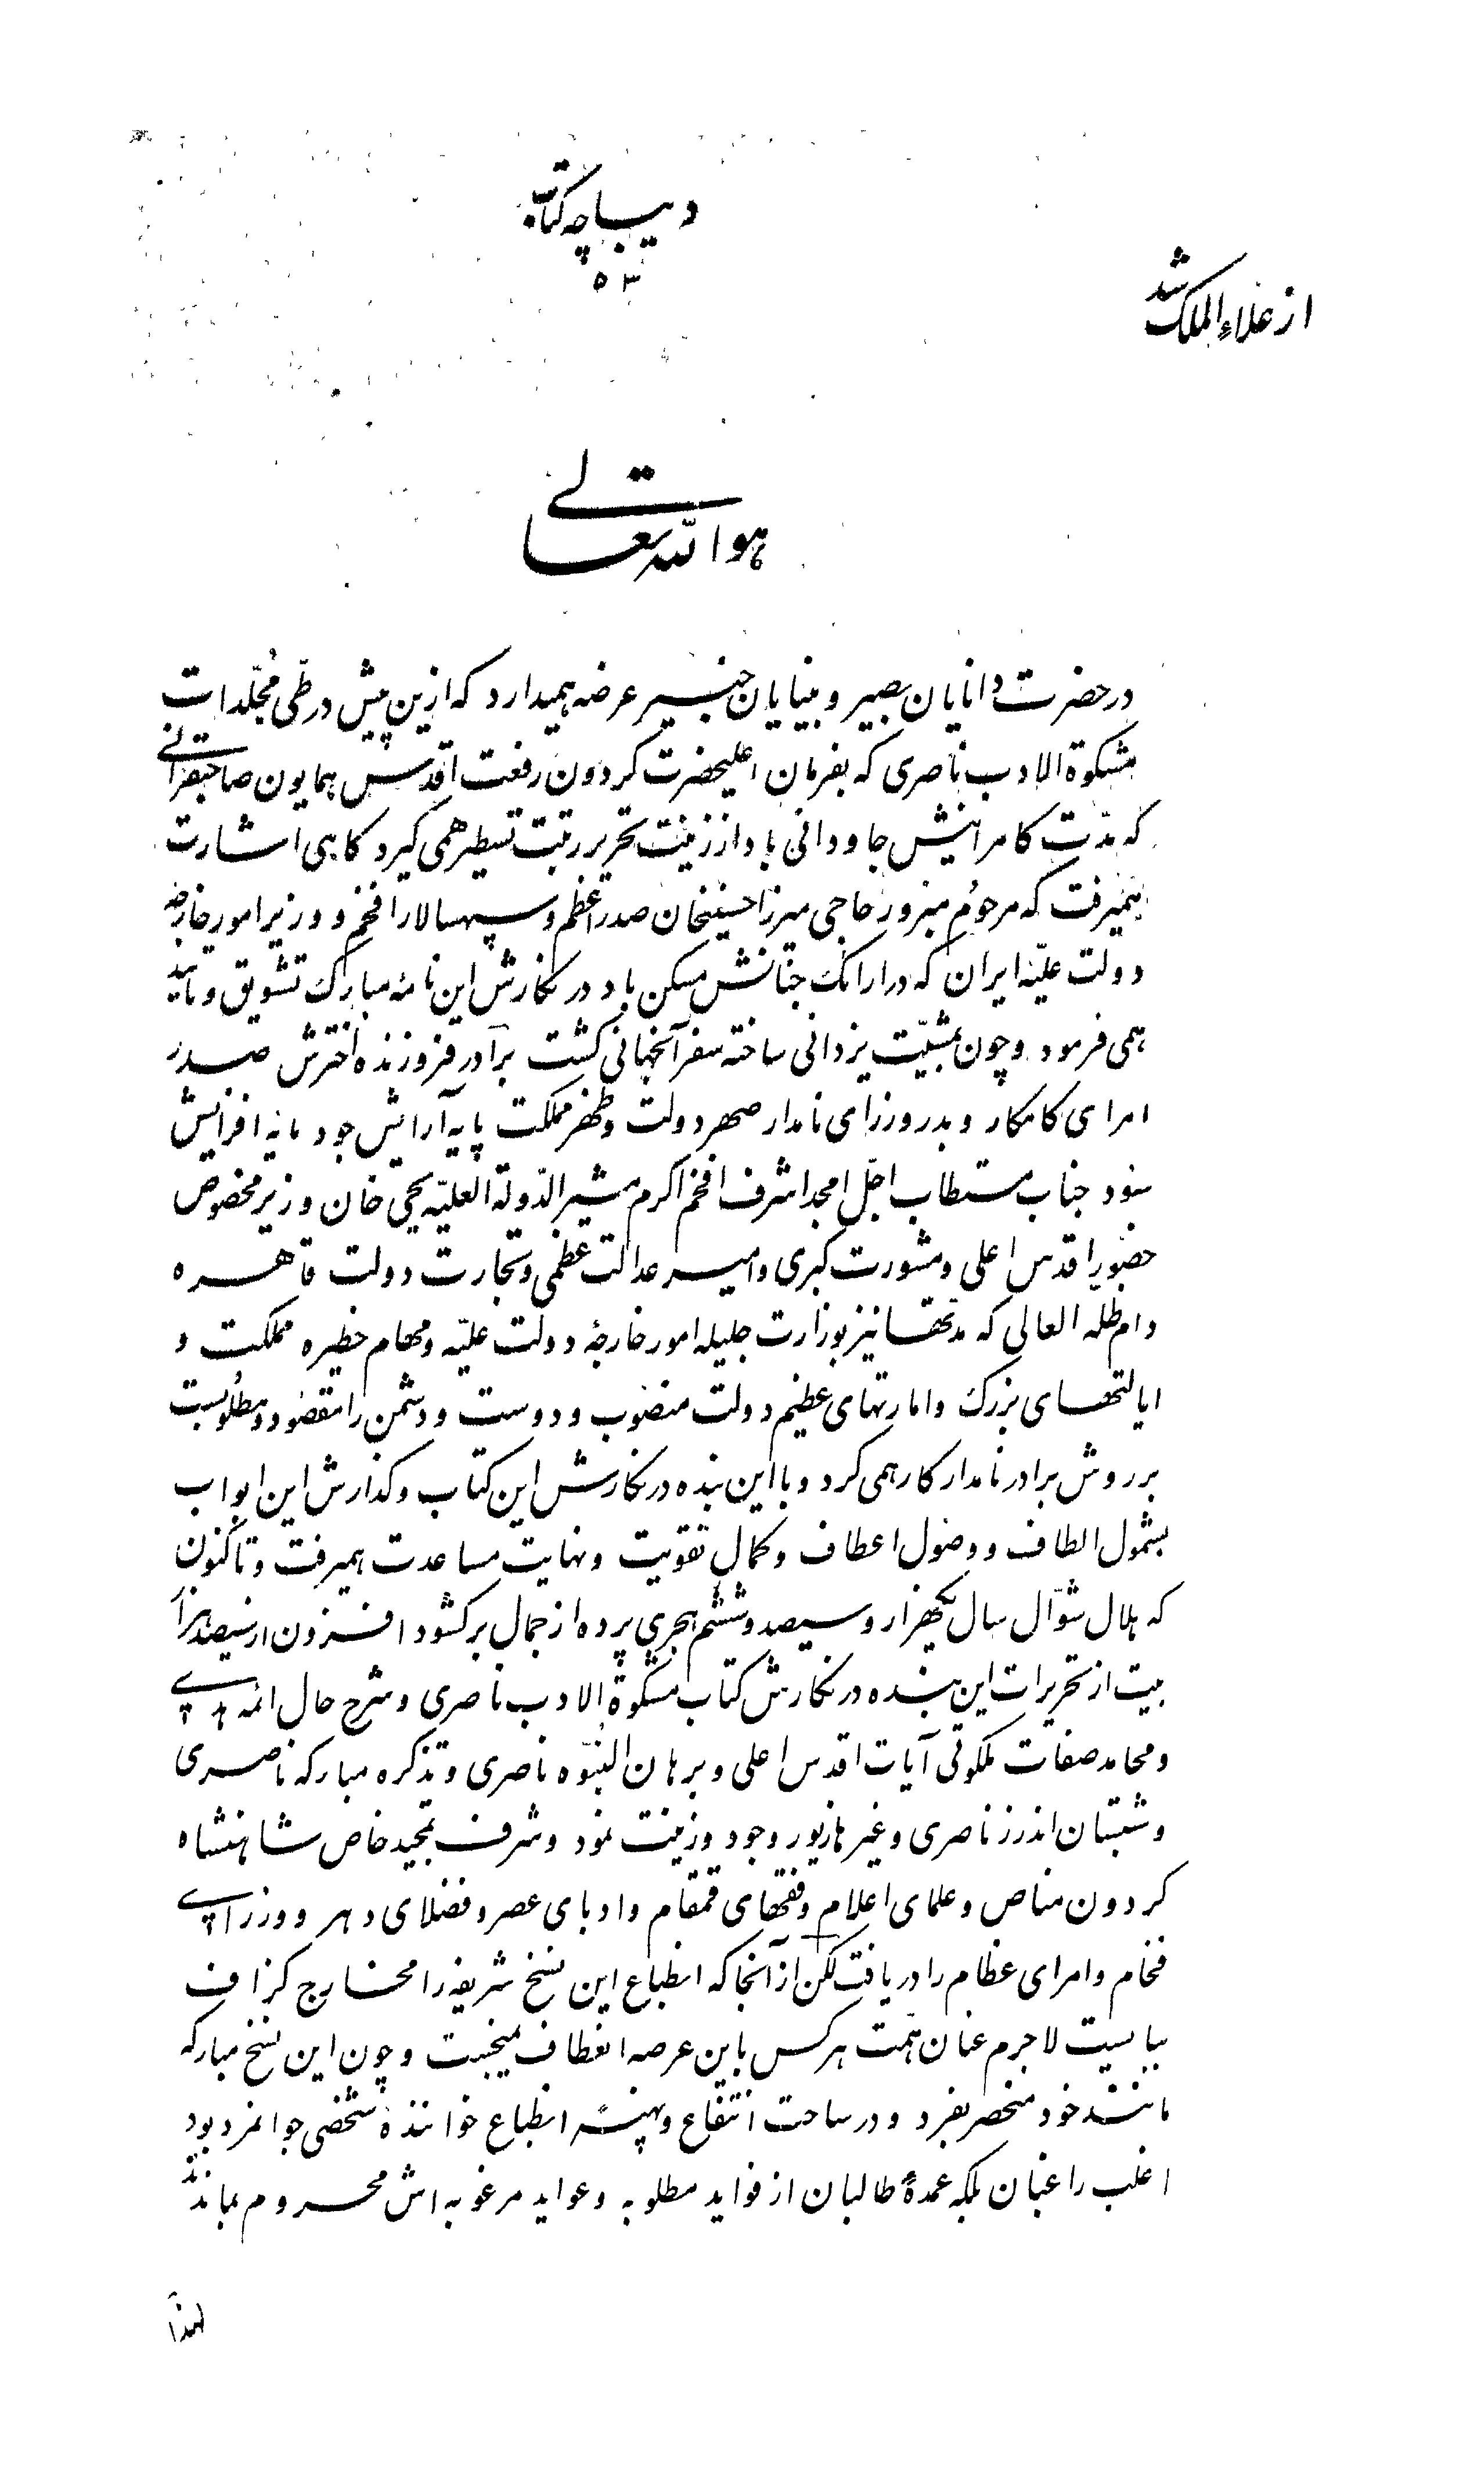 دیباچه کتاب
۵۳
از علاء الملک شد
هو الله تعالی
در حضرت دانایان بصیر و بینایان خبیر عرضه همیدارد که ازین پیش در طی مجلدات
مشکوة الادب ناصری که بفرمان اعلیحضرت کردون رفعت اقدس همایون صاحبقرانی
که مدت کامرانیش جاودانی باد از زینت تحریر رتبت تسطیر همی کیرد کاهی اشارت
همیرفت که مرحوم مبرور حاجی میرزا حسینخان صدر اعظم و سپهسالار افخم و وزیر امور خارجه
دولت علیّه ایران که در ارائک جنانش مسکن باد در نکارش این نامه مبارک تشویق و تائید
همی فرمود و چون بمشیّت یزدانی ساخته سفر آنجهانی کشت برادر فروزنده اخترش صدر
امرای کامکار و بدر وزرای نامدار صهر دولت و ظهر مملکت پایه آرایش جود مایه افزایش
جناب مستطاب اجل امجد اشرف افخم اکرم مشیر الدولة العلیّه یحیی خان وزیر مخصوص
حضور اقدس اعلی و مشورت کبری و امیر عدالت عظمی و تجارت دولت قاهره
دام ظله العالی که مدتها نیز بوزارت جلیله امور خارجهٔ دولت علیّه و مهام خطیره مملکت و
ایالتهای بزرک و امارتهای عظیم دولت منصوب و دوست و دشمن را مقصود و مطلوبست
بر روش برادر نامدار کار همی کرد و با این بنده در نکارش این کتاب و کذارش این ابواب
بشمول الطاف و وصول اعطاف و کمال تقویت و نهایت مساعدت همیرفت و تاکنون
که هلال شوّال سال یکهزار و سیصد و ششم هجری پرده از جمال برکشود افزون از سیصد هزار
بیت از تحریرات این بنده در نکارش کتاب مشکوة الادب ناصری و شرح حال ائمه هدی
و محامد صفات ملکوتی آیات اقدس اعلی و برهان النبوّه ناصری و تذکره مبارکه ناصری
و شبستان اندرز ناصری و غیرها زیور وجود و زینت نمود و شرف تمجید خاص شاهنشاه
کردون مناص و علمای اعلام و فقهای قمقام و ادبای عصر و فضلای دهر و وزرای
فخام و امرای عظام را دریافت لکن از آنجا که انطباع این نسخ شریفه را مخارج کزاف
ببایست لاجرم عنان همّت هر کس باین عرصه انعطاف نمیجست و چون این نسخ مبارکه
مانند خود منحصر بفرد و در ساحت انتفاع و پهنه انطباع خوانندهٔ شخصی جوانمرد بود
اغلب راغبان بلکه عمدهٔ طالبان از فواید مطلوبه و عواید مرغوبه اش محروم بماندند
لهذا